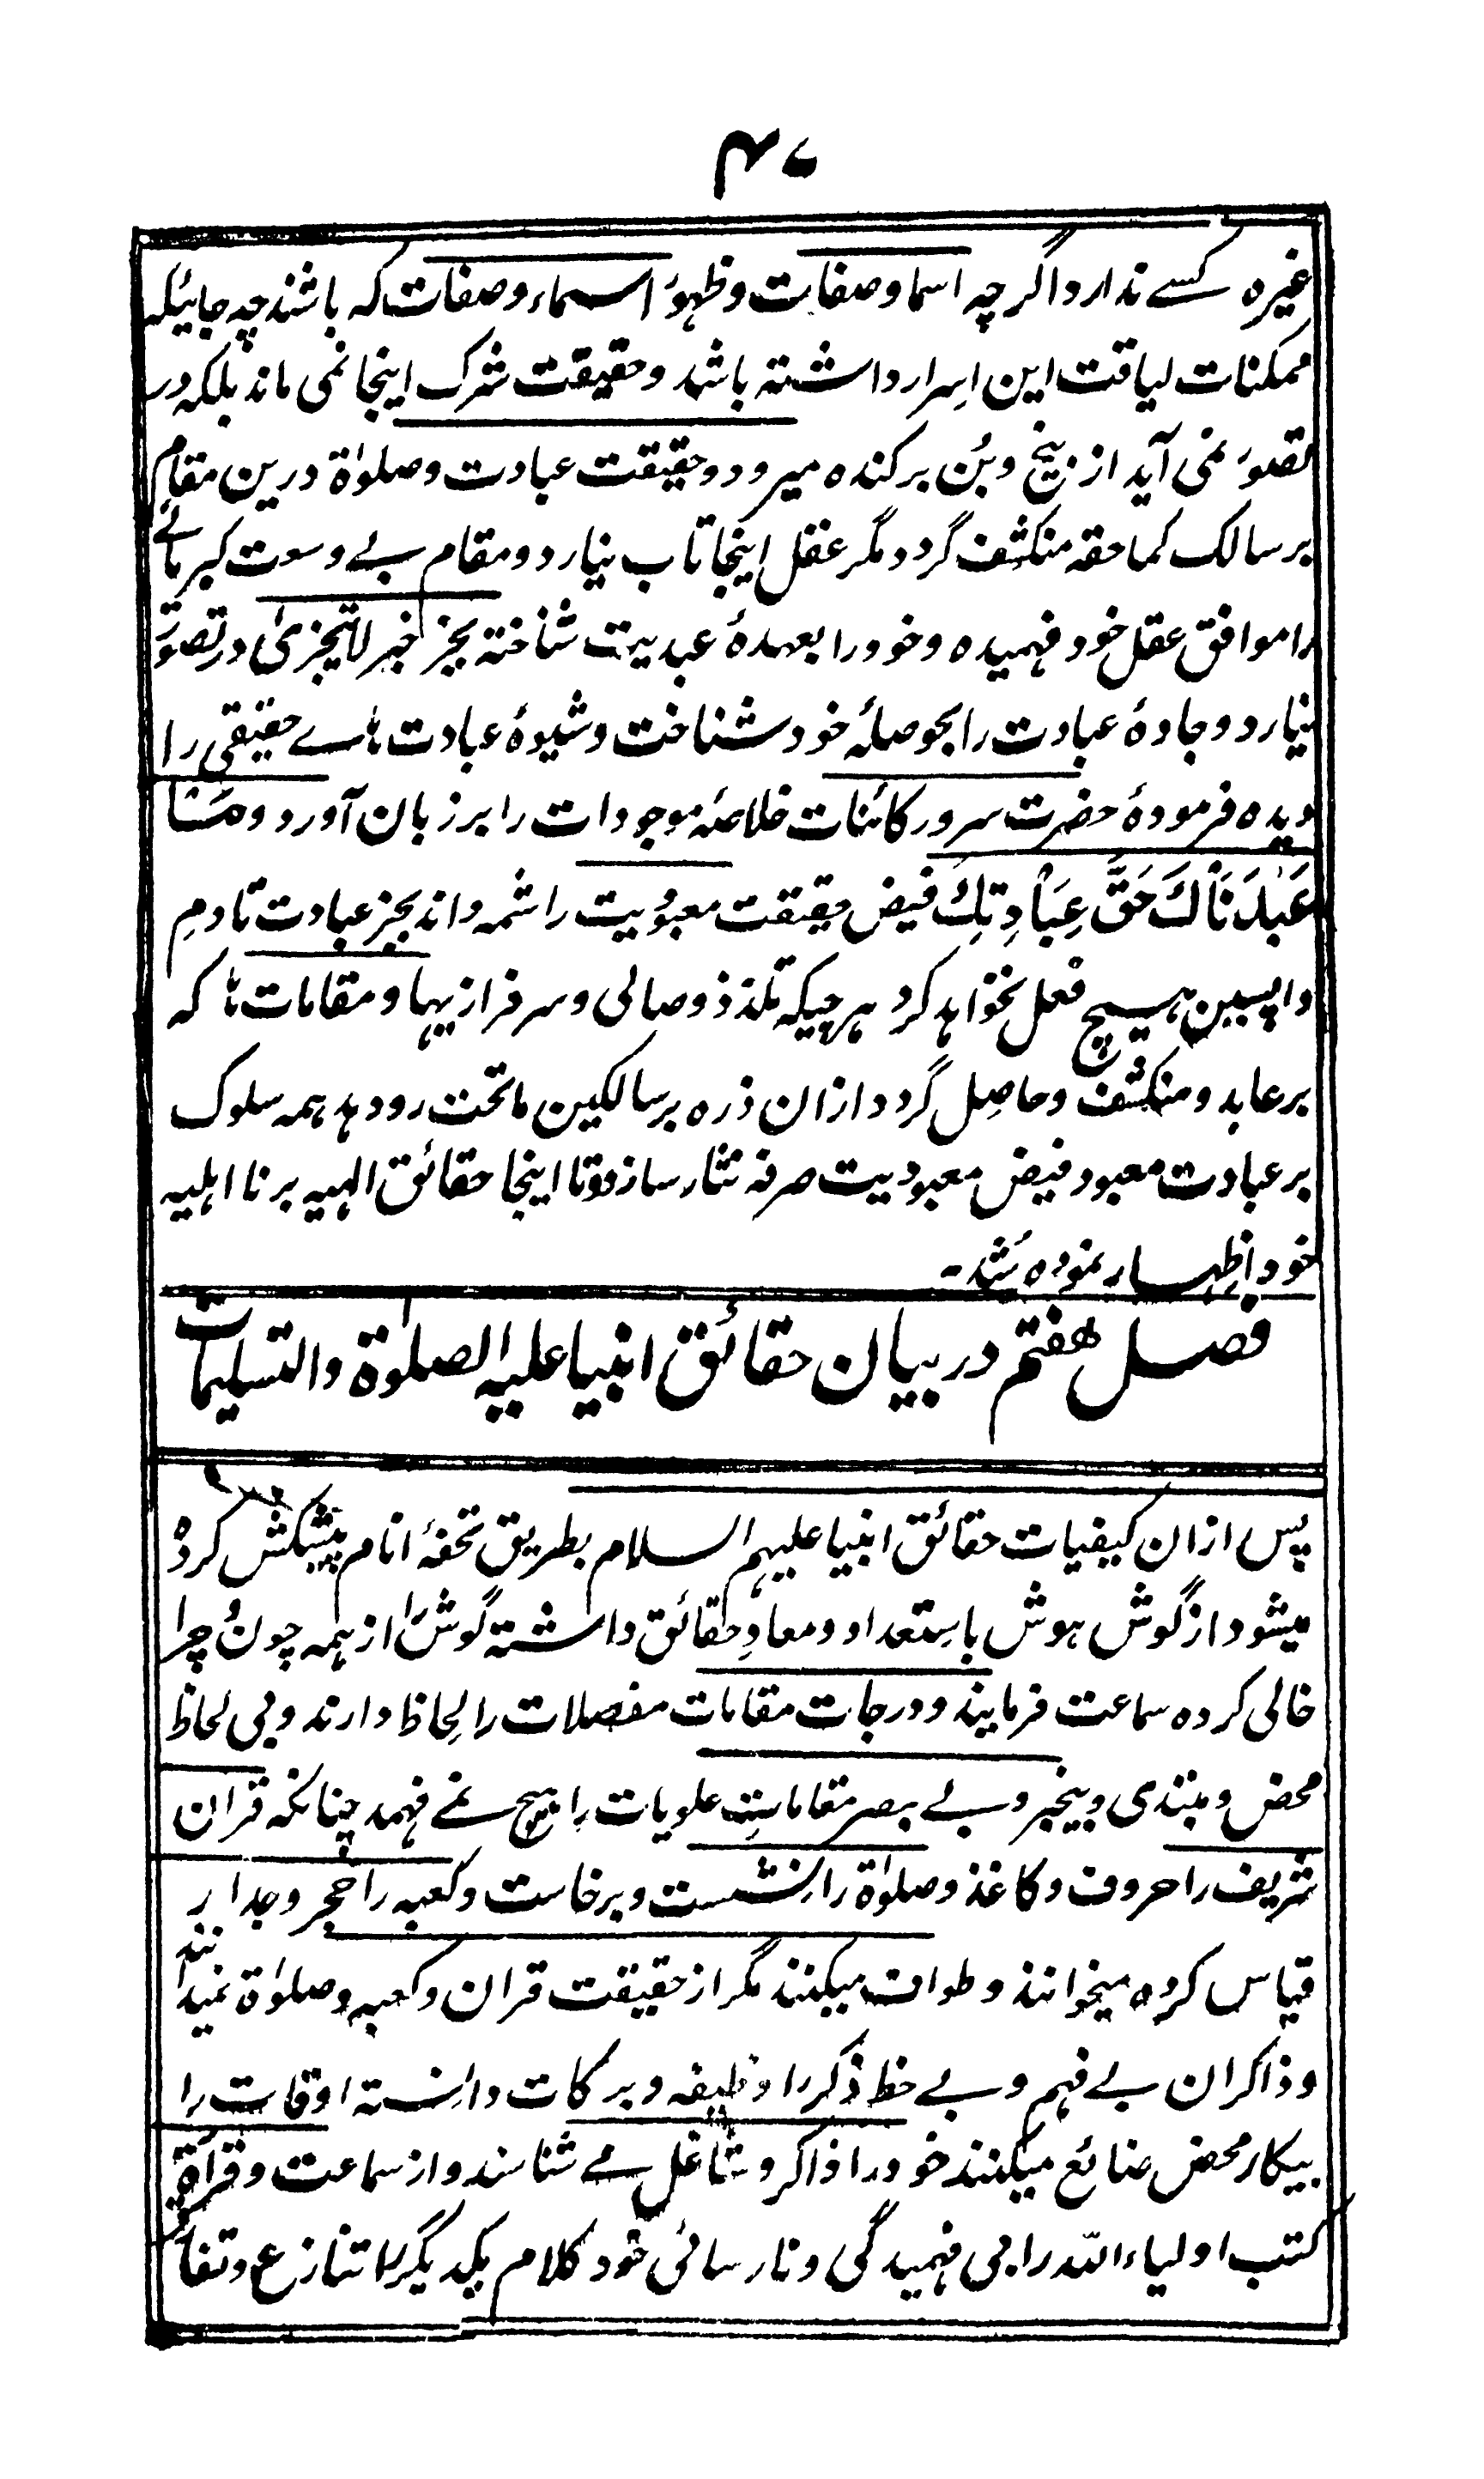 ۴۷
غیره کسے ندارد اگرچه اسما و صفات و ظهور اسماء و صفات که باشند چه جائیکه
ممکنات لیاقت این اسرار داشته باشد و حقیقت شرک اینجا نمی ماند بلکه در
تصور نمی آید از بیخ و بُن برکنده میرود و حقیقت عبادت و صلوٰة درین مقام
بر سالک کماحقه منکشف گردد مگر عقل اینجا تاب نیارد و مقام بے وسعت کبریائے
را موافق عقل خود فهمیده و خود را بعهدهٔ عبدیت شناخته بجز خبر لایتجزیٰ در تصور
نیارد و جادهٔ عبادت را بحوصلهٔ خود شناخت و شیوهٔ عبادت هاے حقیقی را
دیده فرمودهٔ حضرت سرور کائنات خلاصهٔ موجودات را بر زبان آورد و مَا
عَبَدَنَاكَ حَقَّ عِبَادِتِكَ فیض حقیقت معبودیت را شمه داند بجز عبادت تا دمِ
واپسین هیچ فعل نخواهد کرد هر چیکه تلذذ وصالی و سرفرازیها و مقامات ها که
بر عابد و منکشف و حاصِل گردد ازان ذره بر سالکین ماتحت رو دهد همه سلوک
بر عبادت معبود فیض معبودیت صرفه نثار سازد و تا اینجا حقائق الهیه بر نا اهلیه
خود اظهار نموده شد۔
فصل هفتم در بیان حقائق انبیا علیه الصلوٰة والتسلیمات
پس ازان کیفیات حقائق انبیا علیهم السلام بطریق تحفهٔ انام پیشکش کرده
میشود از گوش هوش با استعداد و معادِ حقائق داشته گوش را از همه چون و چرا
خالی کرده سماعت فرمایند و درجات مقامات مفصلات را لحاظ دارند و بی لحاظ
محض و مبتدی و بیخبر و بے بصر مقاماتِ علویات را هیچ نمے فهمد چنانکه قران
شریف را حروف و کاغذ و صلوٰة را نشست و برخاست و کعبه را حجر و جدار
قیاس کرده میخوانند و طواف میکنند مگر از حقیقت قران و کعبه و صلوٰة نمیدانند
و ذاکران بے فهم و بے حظ ذکر را وظیفه و برکات دانسته اوقات را
بیکار محض ضائع میکنند خود را ذاکر و شاغل مے شناسند و از سماعت و قرأة
کتب اولیاء اللّه را بی فهمیدگی و نارسائی خود کلام یکدیگر را تنازع و تفائر